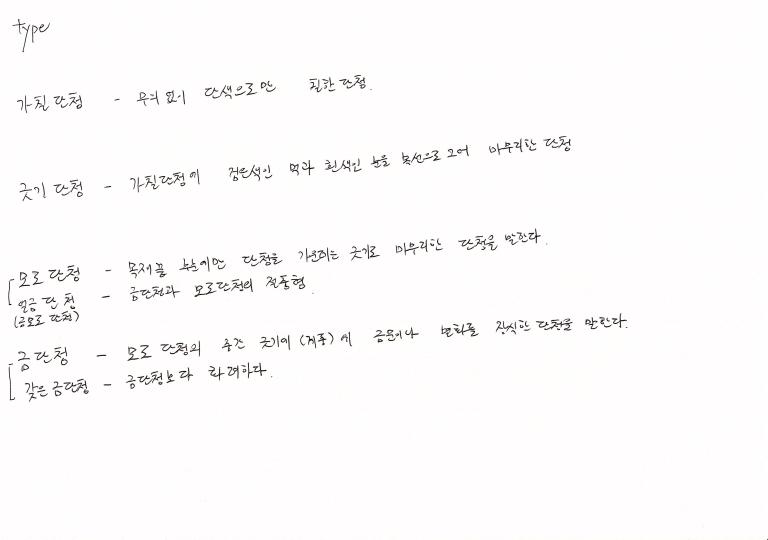 type
가칠단청 - 무늬 없이 단색으로만 칠한 단청.
긋기 단청 - 가칠단청에 검은색인 먹과 흰색인 분을 복선으로 그어 마무리한 단청
모로단청 - 목재끝 부분에만 단청을 가운데는 긋기로 마무리한 단청을 말한다.
얼금단청 - 금단청과 모로단청의 절충형.
(금모로 단청)
금단청 - 모로 단청의 중간 긋기에 (계풍)에 금문이나 별화를 장식한 단청을 말한다.
갖은금단청 - 금단청보다 화려하다.